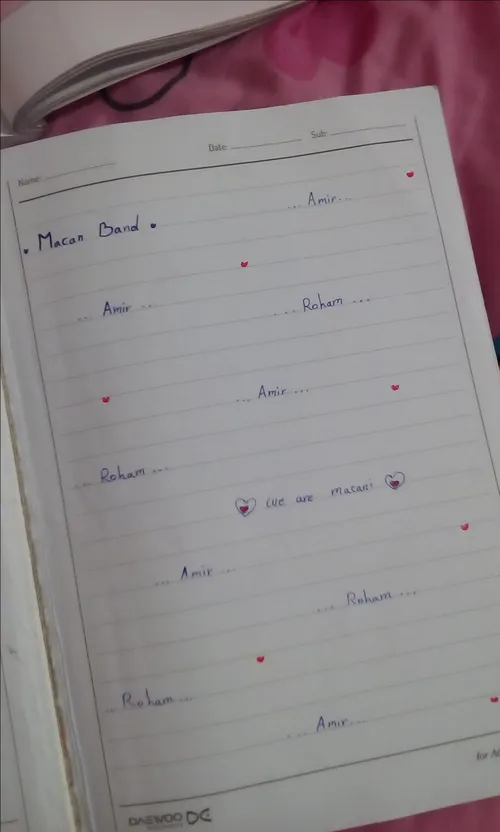 Name:
Date:
Sub:
... Amir...
• Macan Band •
... Amir ...
... Roham ...
... Amir ...
... Roham ...
we are macani
... Amir ...
... Roham ...
... Roham ...
... Amir ...
for A
DAEWOO DC